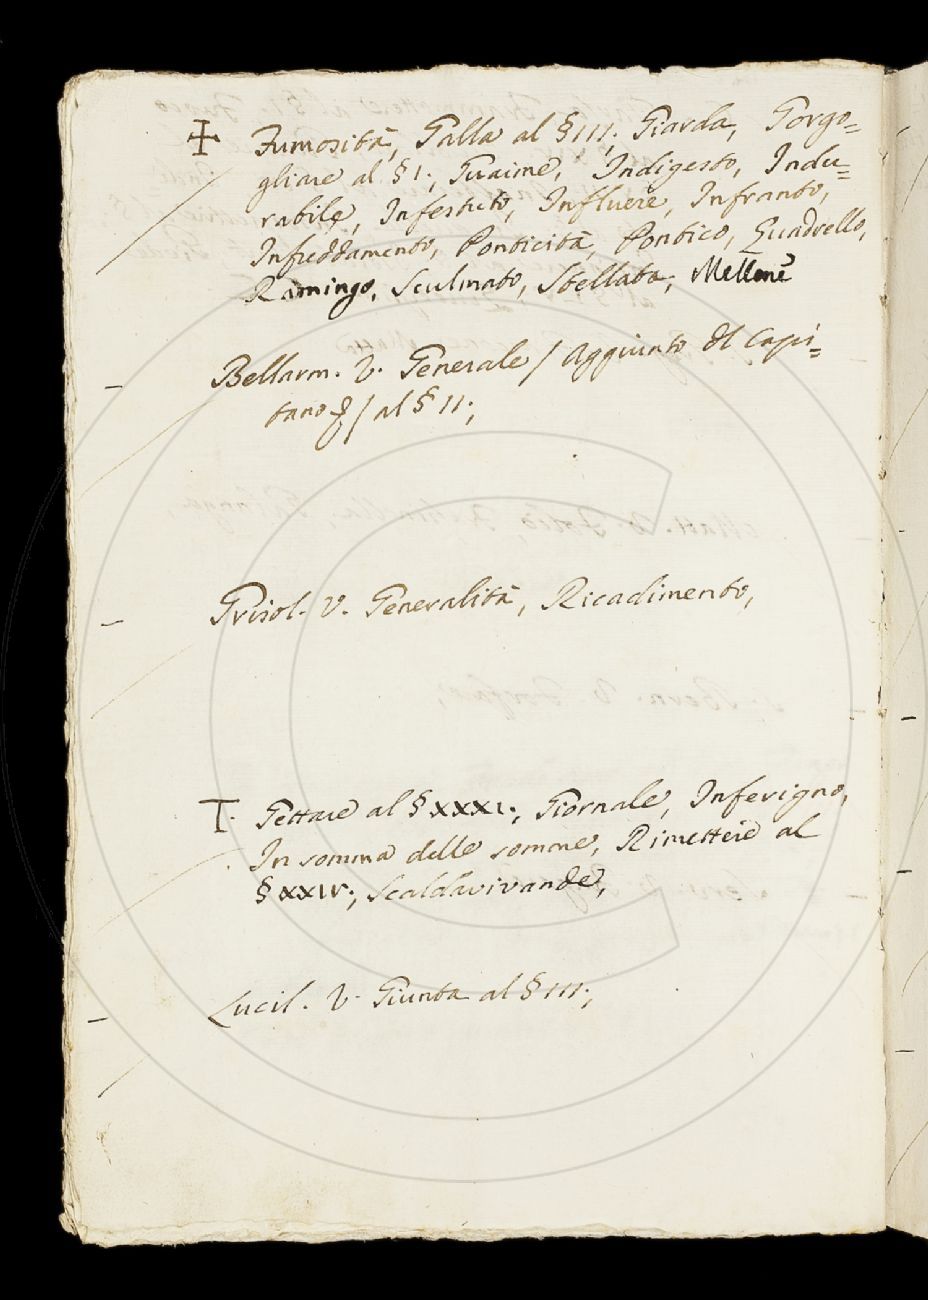 ✢ Fumosità, Galla al § III; Giarda, Gorgo=
gliare al § I; Guaime, Indigesto, Indu=
rabile, Infestuto, Influere, Infranto,
Infreddamento, Ponticità, Pontico, Quadrello,
Ramingo, Sculmato, Stellata, Mellone
Bellarm. V. Generale / Aggiunto di Capi=
tano / al § II;
Grisol. V. Generalità, Ricadimento,
T. Gettare al § XXXI; Giornale, Inferigno,
In somma delle somme, Rimettere al
§ XXIV; Scaldavivande,
Lucil. V. Giunta al § III;